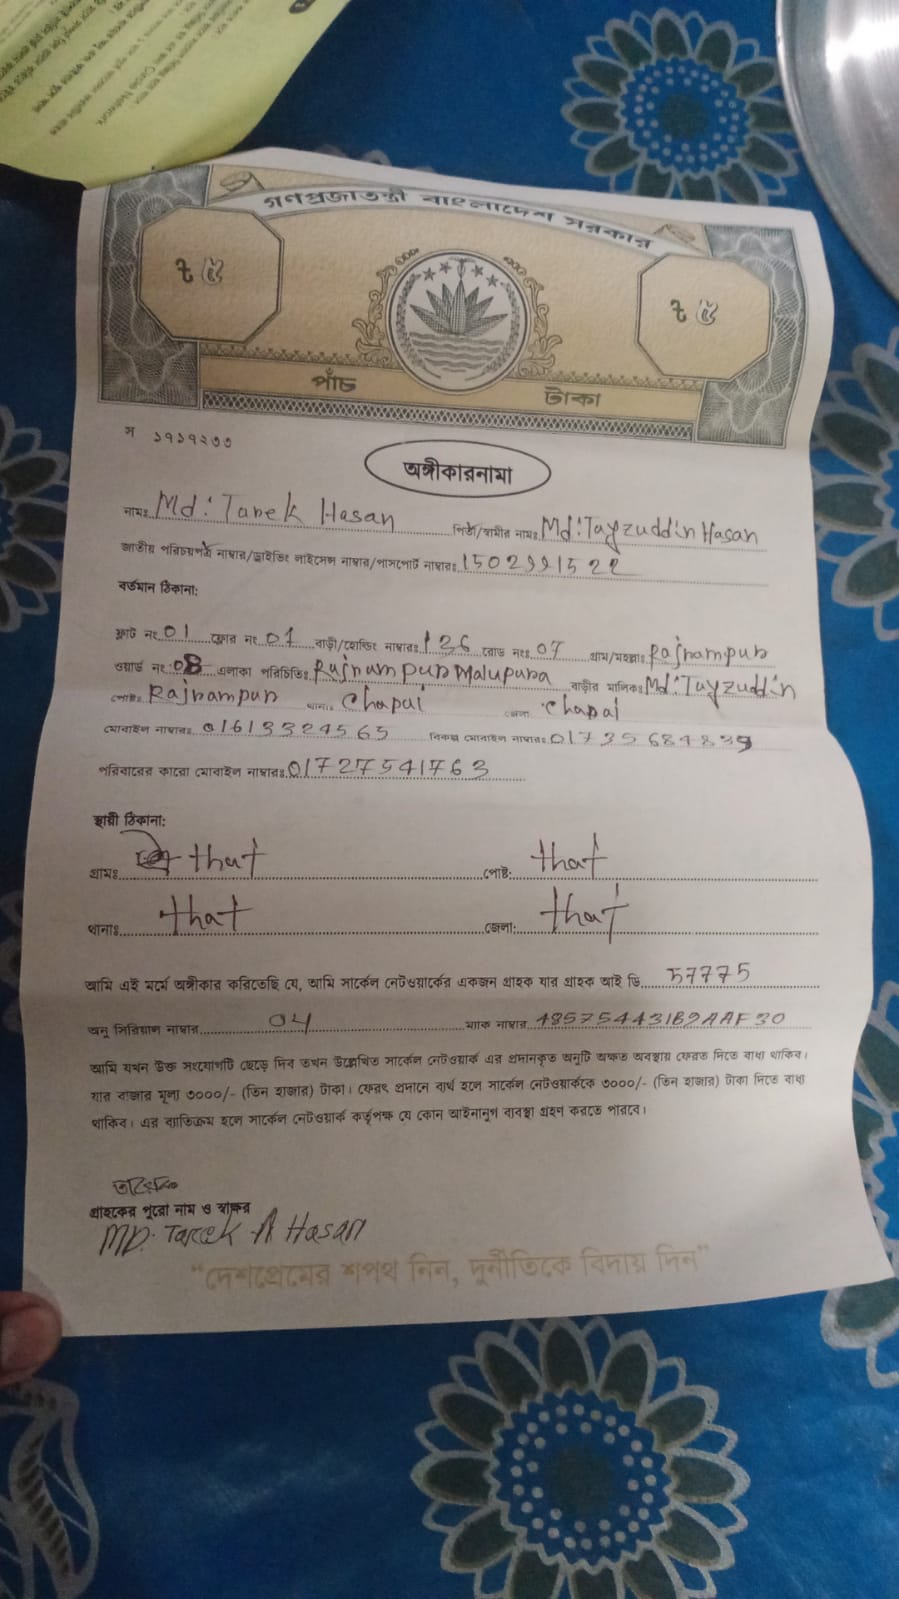 গণপ্রজাতন্ত্রী বাংলাদেশ সরকার
৳ ৫ ৳ ৫
পাঁচ টাকা
স ১৭১৭২৩৩
অঙ্গীকারনামা
নামঃ Md: Tarek Hasan পিতা/স্বামীর নামঃ Md: Tayzuddin Hasan
জাতীয় পরিচয়পত্র নাম্বার/ড্রাইভিং লাইসেন্স নাম্বার/পাসপোর্ট নাম্বারঃ
বর্তমান ঠিকানা:
ফ্লাট নং 01 ফ্লোর নং 01 বাড়ী/হোল্ডিং নাম্বারঃ 136 রোড নংঃ 07 গ্রাম/মহল্লাঃ Rajrampur
ওয়ার্ড নং: 08 এলাকা পরিচিতিঃ Rajrampur Malupura বাড়ীর মালিকঃ Md: Tayzuddin
পোষ্টঃ Rajrampur থানাঃ Chapai জেলা Chapai
মোবাইল নাম্বারঃ 01613324565 বিকল্প মোবাইল নাম্বারঃ
পরিবারের কারো মোবাইল নাম্বারঃ 01727541763
স্থায়ী ঠিকানা:
গ্রামঃ that পোষ্ট: that
থানাঃ that জেলা: that
আমি এই মর্মে অঙ্গীকার করিতেছি যে, আমি সার্কেল নেটওয়ার্কের একজন গ্রাহক যার গ্রাহক আই ডি 57775
অনু সিরিয়াল নাম্বার 04 ম্যাক নাম্বার 485754431B9AAF30
আমি যখন উক্ত সংযোগটি ছেড়ে দিব তখন উল্লেখিত সার্কেল নেটওয়ার্ক এর প্রদানকৃত অনুটি অক্ষত অবস্থায় ফেরত দিতে বাধ্য থাকিব।
যার বাজার মূল্য ৩০০০/- (তিন হাজার) টাকা। ফেরৎ প্রদানে ব্যর্থ হলে সার্কেল নেটওয়ার্ককে ৩০০০/- (তিন হাজার) টাকা দিতে বাধ্য
থাকিব। এর ব্যতিক্রম হলে সার্কেল নেটওয়ার্ক কর্তৃপক্ষ যে কোন আইনানুগ ব্যবস্থা গ্রহণ করতে পারবে।
তারেক
গ্রাহকের পুরো নাম ও স্বাক্ষর
MD. Tarek A Hasan
"দেশপ্রেমের শপথ নিন, দুর্নীতিকে বিদায় দিন"